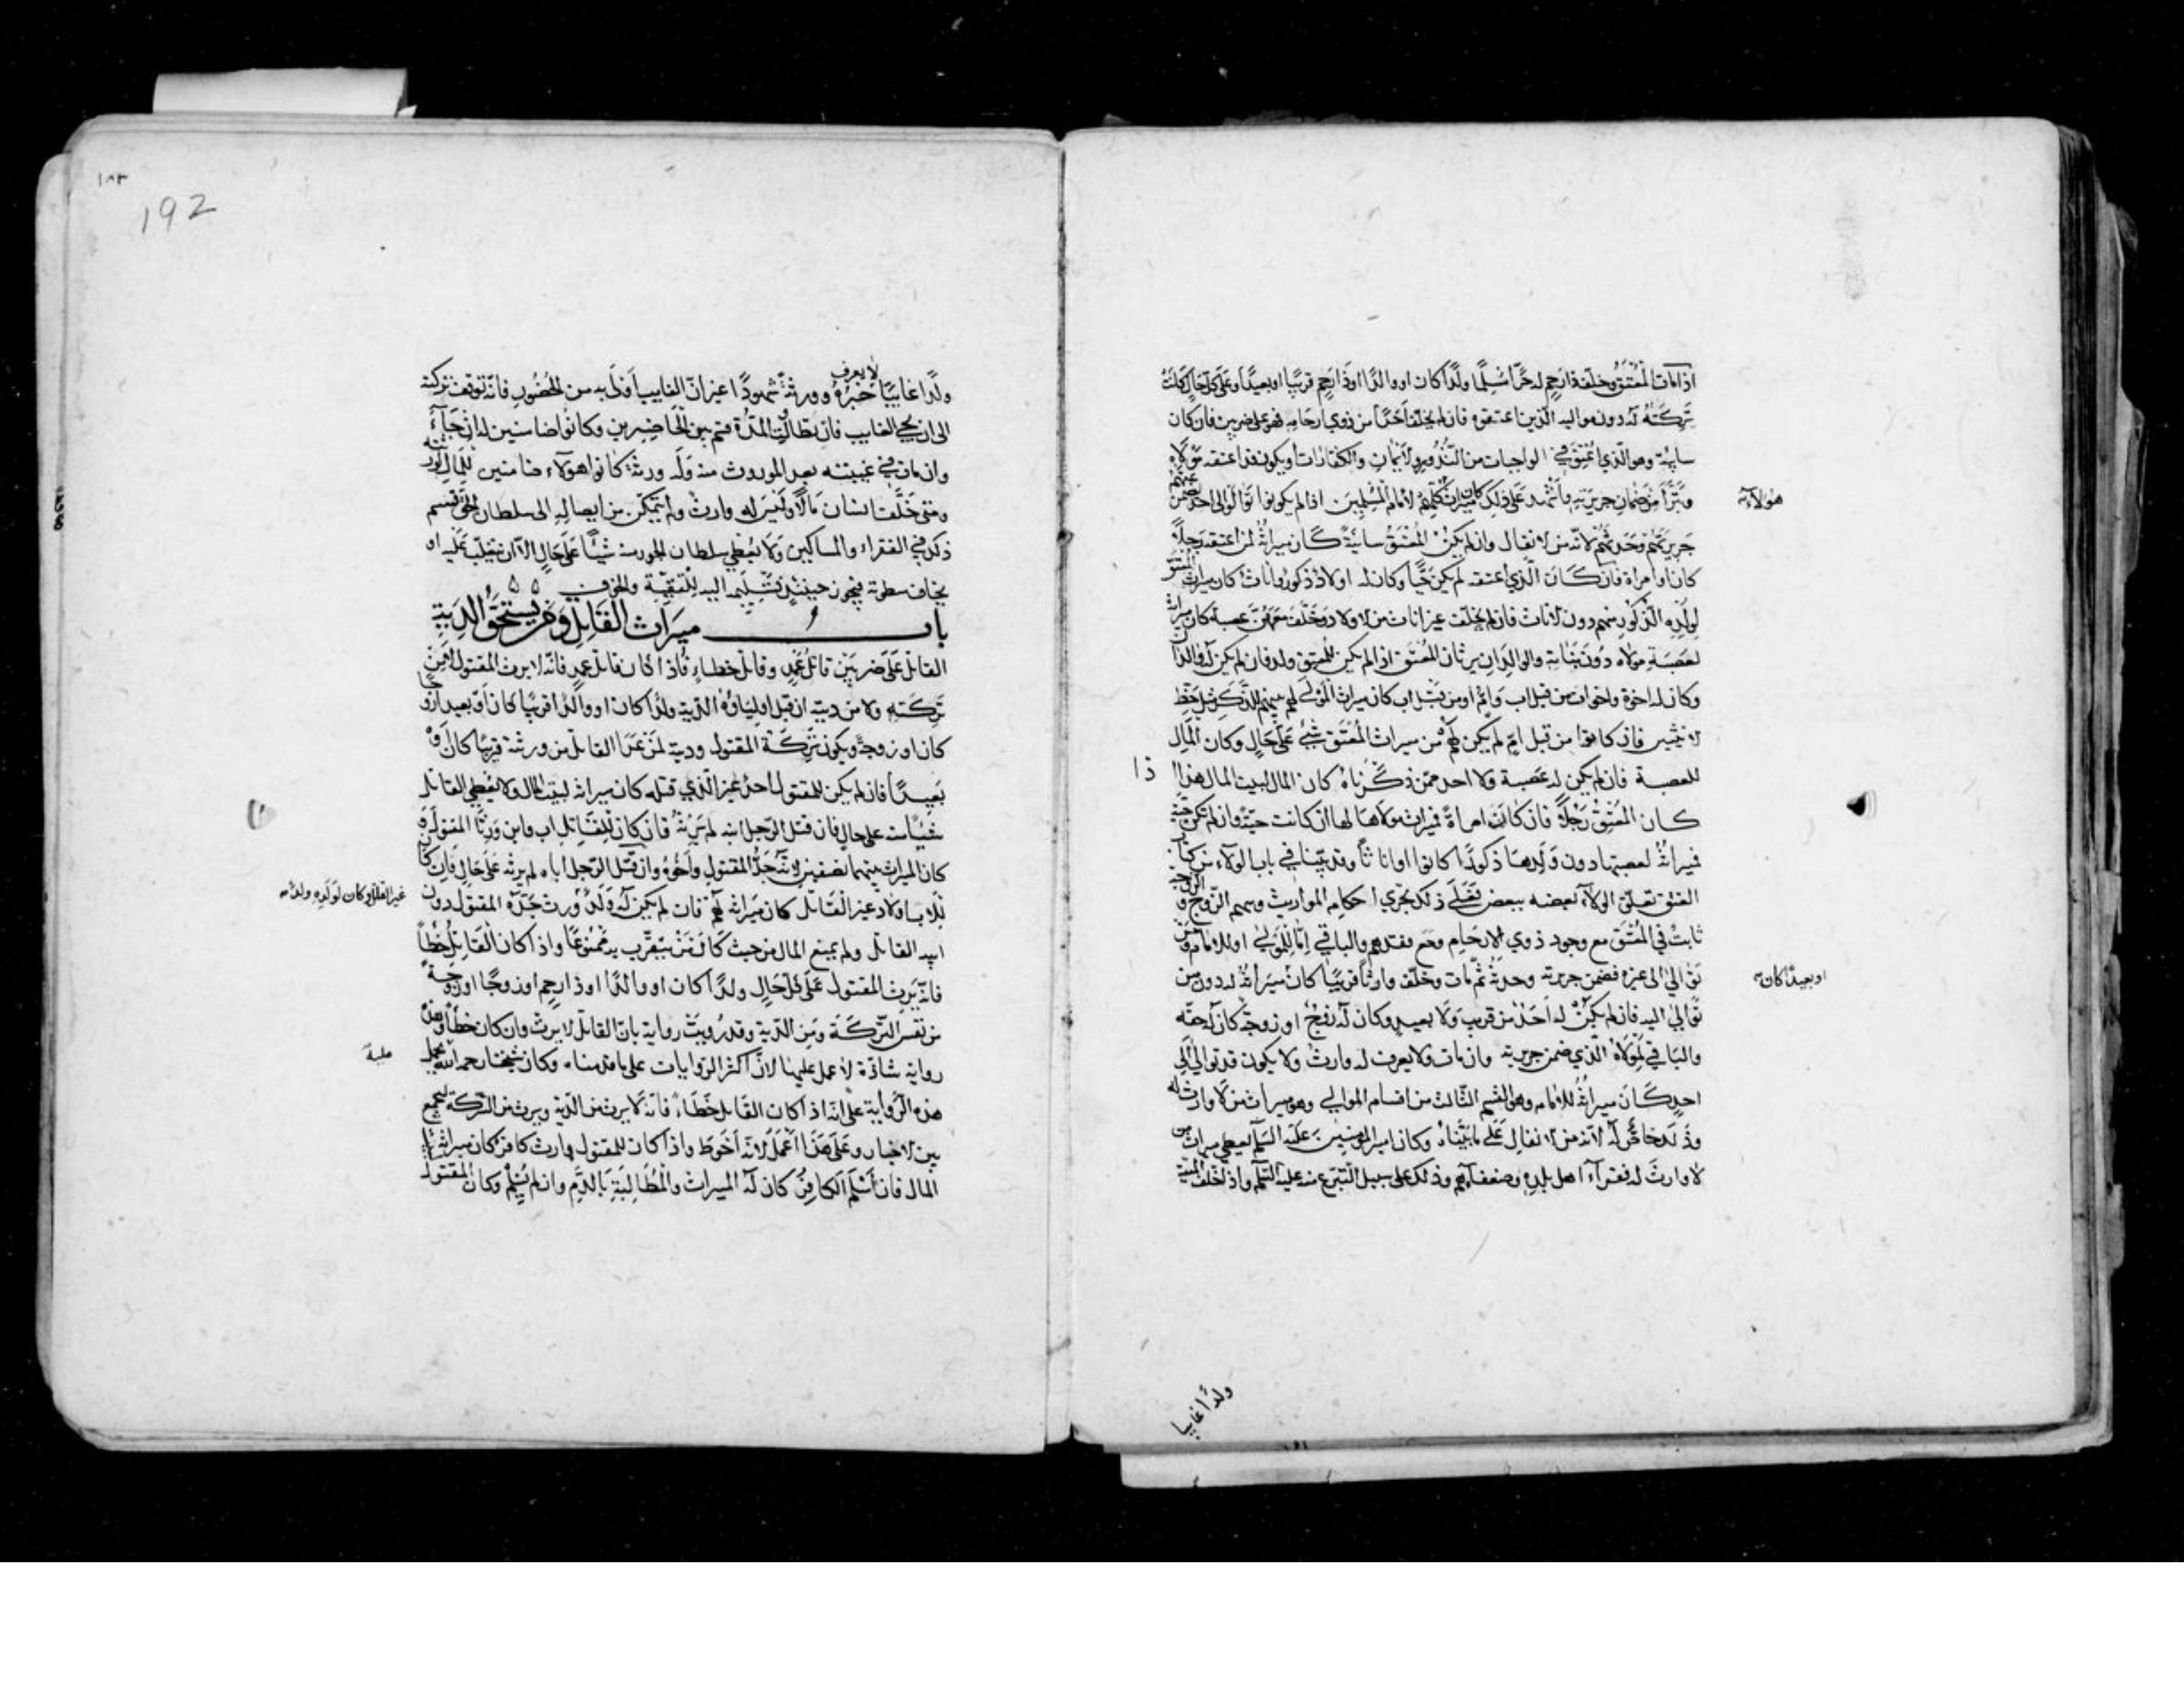 اذا مات المعتق وخلف ذا رحم له حرا مسلما ولدا كان او والدا او ذا رحم قريبا او بعيدا وعلى كل حال كانت
تركته له دون مواليه الذين اعتقوه فان لم يخلف احدا من ذوي ارحامه فهو على ضربين فان كان
سايبة وهو الذي اعتق في الواجبات من النذور والايمان والكفارات او يكون قد اعتقه مولاه
وتبرا من ضمان جريرته واشهد على ذلك كان ميراث لامام المسلمين اذا لم يكونوا توالوا الى احد
هولاء
جريرتهم وحدثهم لانه من الانفال وان لم يكن المعتق سائبة كان ميراثه لمن اعتقه رجلا
كان او امراة فان كان الذي اعتقه لم يكن حيا وكان له اولاد ذكور واناث كان ميراث المعتق
لولده الذكور منهم دون الاناث فان لم يخلف غير اناث من الاولاد وخلف معهن عصبة كان ميراثه
لعصبة مولاه دون بناته والوالدان يرثان المعتق اذا لم يكن للمعتق ولد فان لم يكن له والدان
وكان له اخوة واخوات من قبل اب وام او من قبل اب كان ميراث المولى لهم بينهم للذكر مثل حظ
الانثيين فان كانوا من قبل ام لم يكن لهم من ميراث المعتق شيء على حال وكان المال
للعصبة فان لم يكن له عصبة ولا احد ممن ذكرناه كان المال لبيت المال هذا
ذا
كان المعتق رجلا فان كانت امراة فميراث مولاها لها ان كانت حية وان لم تكن حية
فميراثه لعصبتها دون ولدها ذكورا كانوا او اناثا وقد بينا في باب الولاء من كتاب
العتق تعلق الولاء بعضه ببعض فعلى ذلك يجري احكام المواريث وسهم الزوج والزوجة
ثابت في المعتق مع وجود ذوي الارحام ومع فقدهم والباقي اما للمولى او للامام ومن
توالى الى غيره فضمن جريرته وحدثه ثم مات وخلف وارثا قريبا كان ميراثه له دون من
او بعيدا كان
توالى اليه فان لم يكن له احد من قريب ولا بعيد وكان له زوج او زوجة كان له حقه
والباقي لمولاه الذي ضمن جريرته وان مات ولا يعرف له وارث ولا يكون قد توالى الى
احد كان ميراثه للامام وهو القسم الثالث من اقسام الموالي وهو ميراث من لا وارث له
وذلك خاص له لانه من الانفال على ما بيناه وكان امير المومنين عليه السلم يعطي ميراث من
لا وارث له فقراء اهل بلده وضعفائهم وذلك على سبيل التبرع منه عليه السلم واذا خلف الميت
ولدا غايبا
١٨٣
192
ولدا غايبا لا يعرف خبره وورثة شهودا غير ان الغايب اولى به من الحضور فانه توقف تركته
الى ان يجي الغايب فان تطاولت المدة قسم بين الحاضرين وكانوا ضامنين له ان جاء
وان مات في غيبته بعد الموروث منه وله ورثة كانوا هولاء ضامنين للمال لورثته
ومتى خلف انسان مالا وليس له وارث ولم يتمكن من ايصاله الى سلطان الحق قسم
ذلك في الفقراء والمساكين ولا يعطي سلطان الجور منه شيئا على حال الا ان يتغلب عليه او
يخاف سطوته فيجوز حينئذ تسليمه اليه للتقية والخوف
باب ميراث القاتل ومن يستحق الدية
القاتل على ضربين قاتل عمد وقاتل خطاء فاذا كان قاتل عمد فانه لا يرث المقتول لا من
تركته ولا من ديته ان قبل اولياؤه الدية ولدا كان او والدا قريبا كان او بعيدا زوجا
كان او زوجة ويكون تركة المقتول وديته لمن عدا القاتل من ورثته قريبا كان او
بعيدا فان لم يكن للمقتول احد غير الذي قتله كان ميراثه لبيت المال ولا يعطي القاتل
شيئا منه على حال فان قتل الرجل ابنه لم يرثه فان كان للقاتل اب وابن ورثا المقتول
كان الميراث بينهما نصفين لانه جد المقتول واخوه وان قتل الرجل اباه لم يرثه على حال فان كان
للاب اولاد غير القاتل كان ميراثه لهم فان لم يكن له ولد ورث جده المقتول دون
غير القاتل وكان لولده ولد
ابيه القاتل ولم يمنع المال من حيث كان من يتقرب به ممنوعا واذا كان القاتل خطأ
فانه يرث المقتول على كل حال ولدا كان او والدا او ذا رحم او زوجا او زوجة
من نفس التركة ومن الدية وقد رويت رواية بان القاتل لا يرث وان كان خطأ وهذه
رواية شاذة لا عمل عليها لان اكثر الروايات على ما قدمناه وكان شيخنا رحمه الله يحمل
هذه الرواية على انه اذا كان القاتل خطاء فانه لا يرث من الدية ويرث من التركة ليجمع
بين الاخبار وعلى هذا اعمل لانه احوط واذا كان للمقتول وارث كافر كان ميراثه لبيت
المال فان اسلم الكافر كان له الميراث والمطالبة بالدم وان لم يسلم وكان المقتول